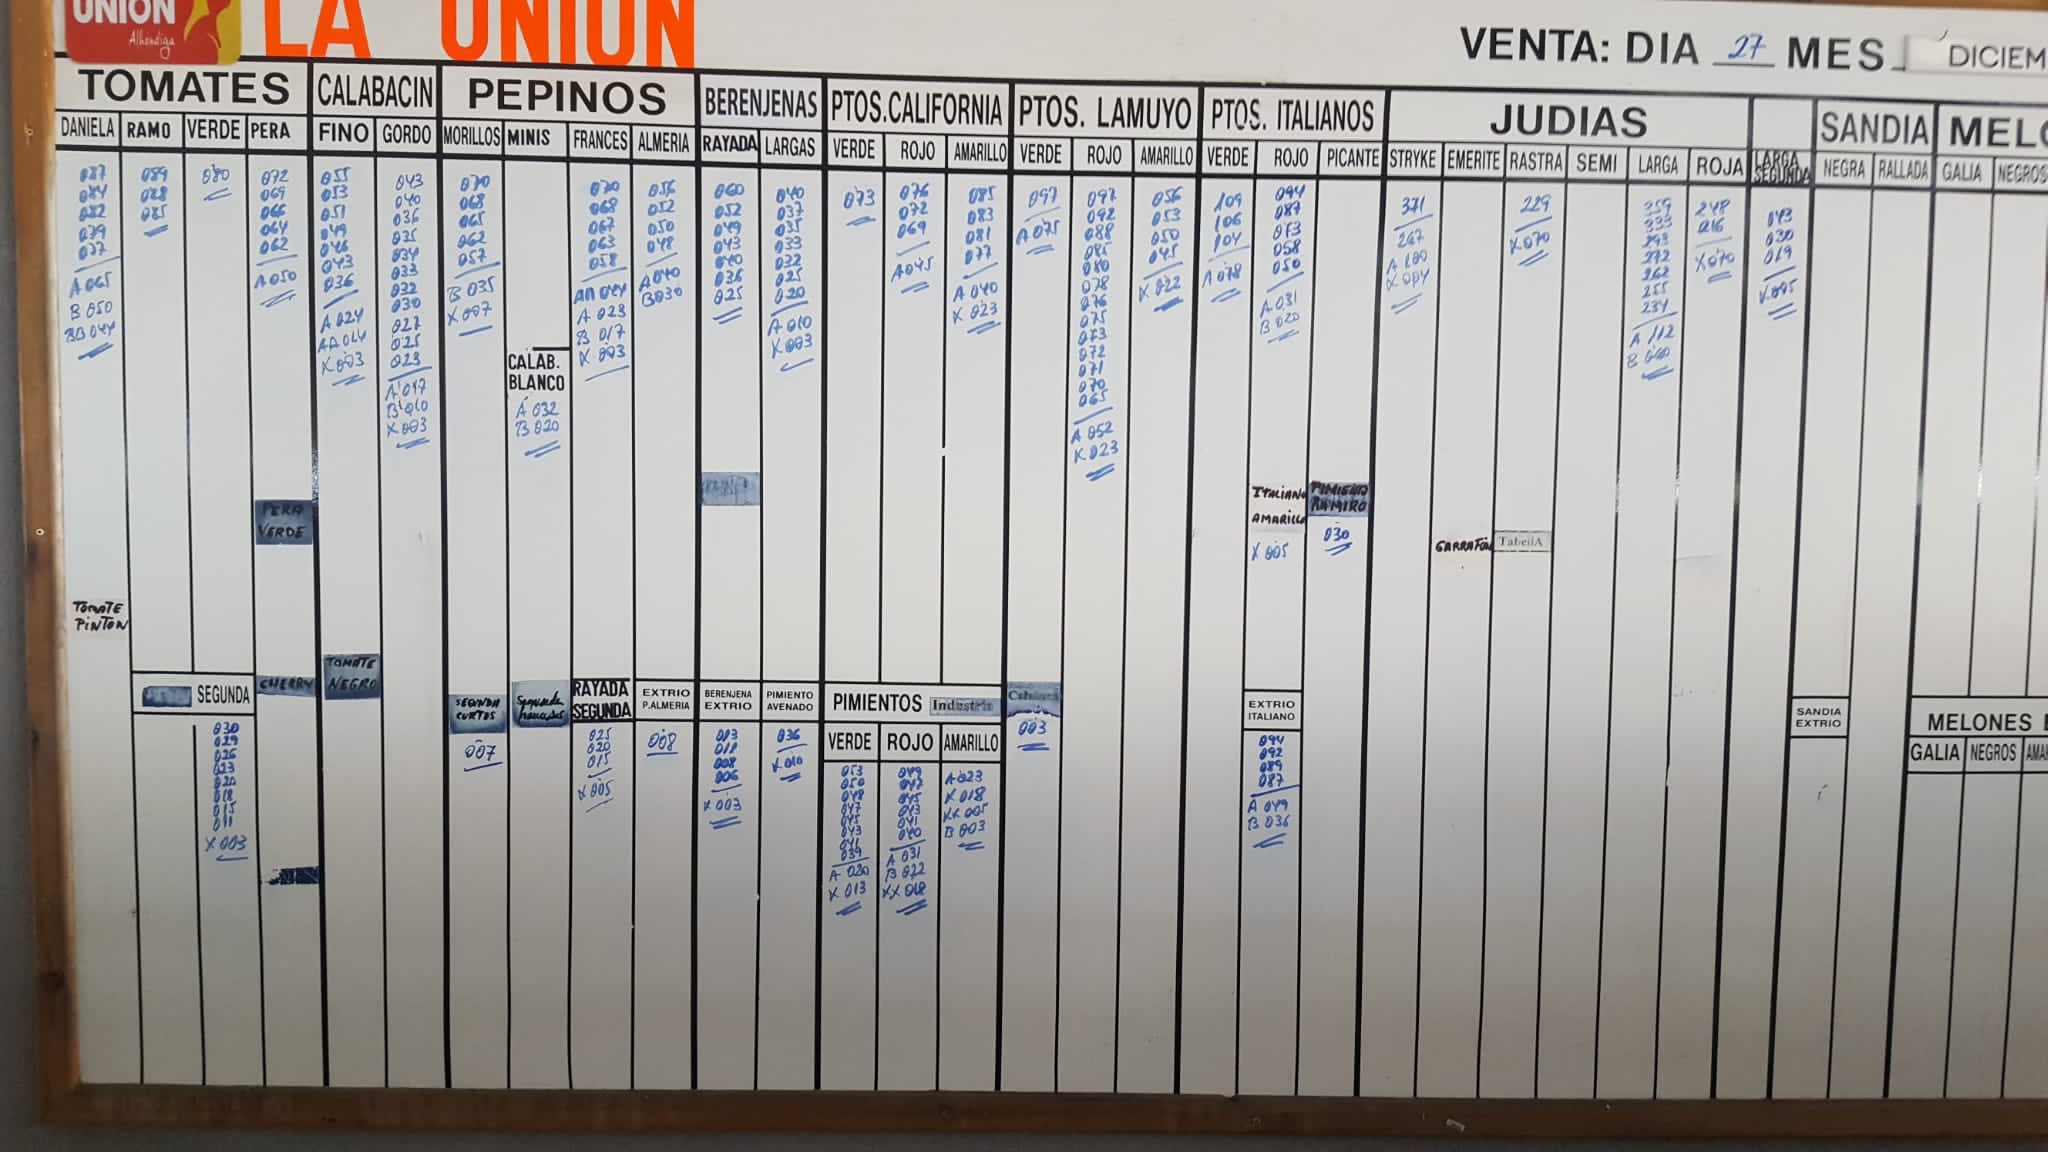 UNION
Alhóndiga
LA UNION
VENTA: DIA 27 MES DICIEM
TOMATES
DANIELA RAMO VERDE PERA
087 089 080 072
084 088 069
082 085 066
079 064
077 062
A 065 A 050
B 050
BB 044
PERA
VERDE
TOMATE
PINTON
SEGUNDA
CHERRY
030
029
026
023
020
018
015
011
X 003
CALABACIN
FINO GORDO
055 043
053 040
051 036
049 035
046 034
043 033
036 032
A 024 030
AA 014 027
X 003 025
023
A 017
B 010
X 003
TOMATE
NEGRO
PEPINOS
MORILLOS MINIS FRANCES ALMERIA
070 070 056
068 068 052
065 067 050
062 063 048
057 058 A 040
B 035 AA 044 B 030
X 007 A 023
B 017
X 003
CALAB.
BLANCO
A 032
B 020
SEGUNDA
CORTOS
007
Segunda
RAYADA
SEGUNDA
025
020
015
X 005
EXTRIO
P.ALMERIA
008
BERENJENAS
RAYADA LARGAS
060 040
052 037
049 035
043 033
040 032
036 025
025 020
A 010
X 003
BERENJENA
EXTRIO
013
011
008
006
X 003
PIMIENTO
AVENADO
036
X 010
PTOS.CALIFORNIA
VERDE ROJO AMARILLO
073 076 085
072 083
069 081
A 045 077
A 040
X 023
PIMIENTOS Industria
VERDE ROJO AMARILLO
053 049 A 023
050 047 X 018
048 045 XX 005
047 043 B 003
045 041
043 040
041 A 031
039 B 022
A 020 XX 018
X 013
PTOS. LAMUYO
VERDE ROJO AMARILLO
097 097 056
A 075 092 053
088 050
085 045
080 X 022
078
076
075
073
072
071
070
065
A 052
X 023
003
PTOS. ITALIANOS
VERDE ROJO PICANTE
109 094
106 087
104 073
A 078 058
050
A 031
B 020
ITALIANO
AMARILLO
X 005
PIMIENTO
RAMIRO
030
EXTRIO
ITALIANO
094
092
089
087
A 049
B 036
JUDIAS
STRYKE EMERITE RASTRA SEMI LARGA ROJA
371 229 359 248
267 X 070 333 216
A 100 293 X 070
X 004 272
262
255
234
A 112
B 060
GARRAFON
TabellA
LARGA
SEGUNDA
043
030
019
X 005
SANDIA
NEGRA RALLADA
SANDIA
EXTRIO
MELO
GALIA NEGROS
MELONES E
GALIA NEGROS AMA